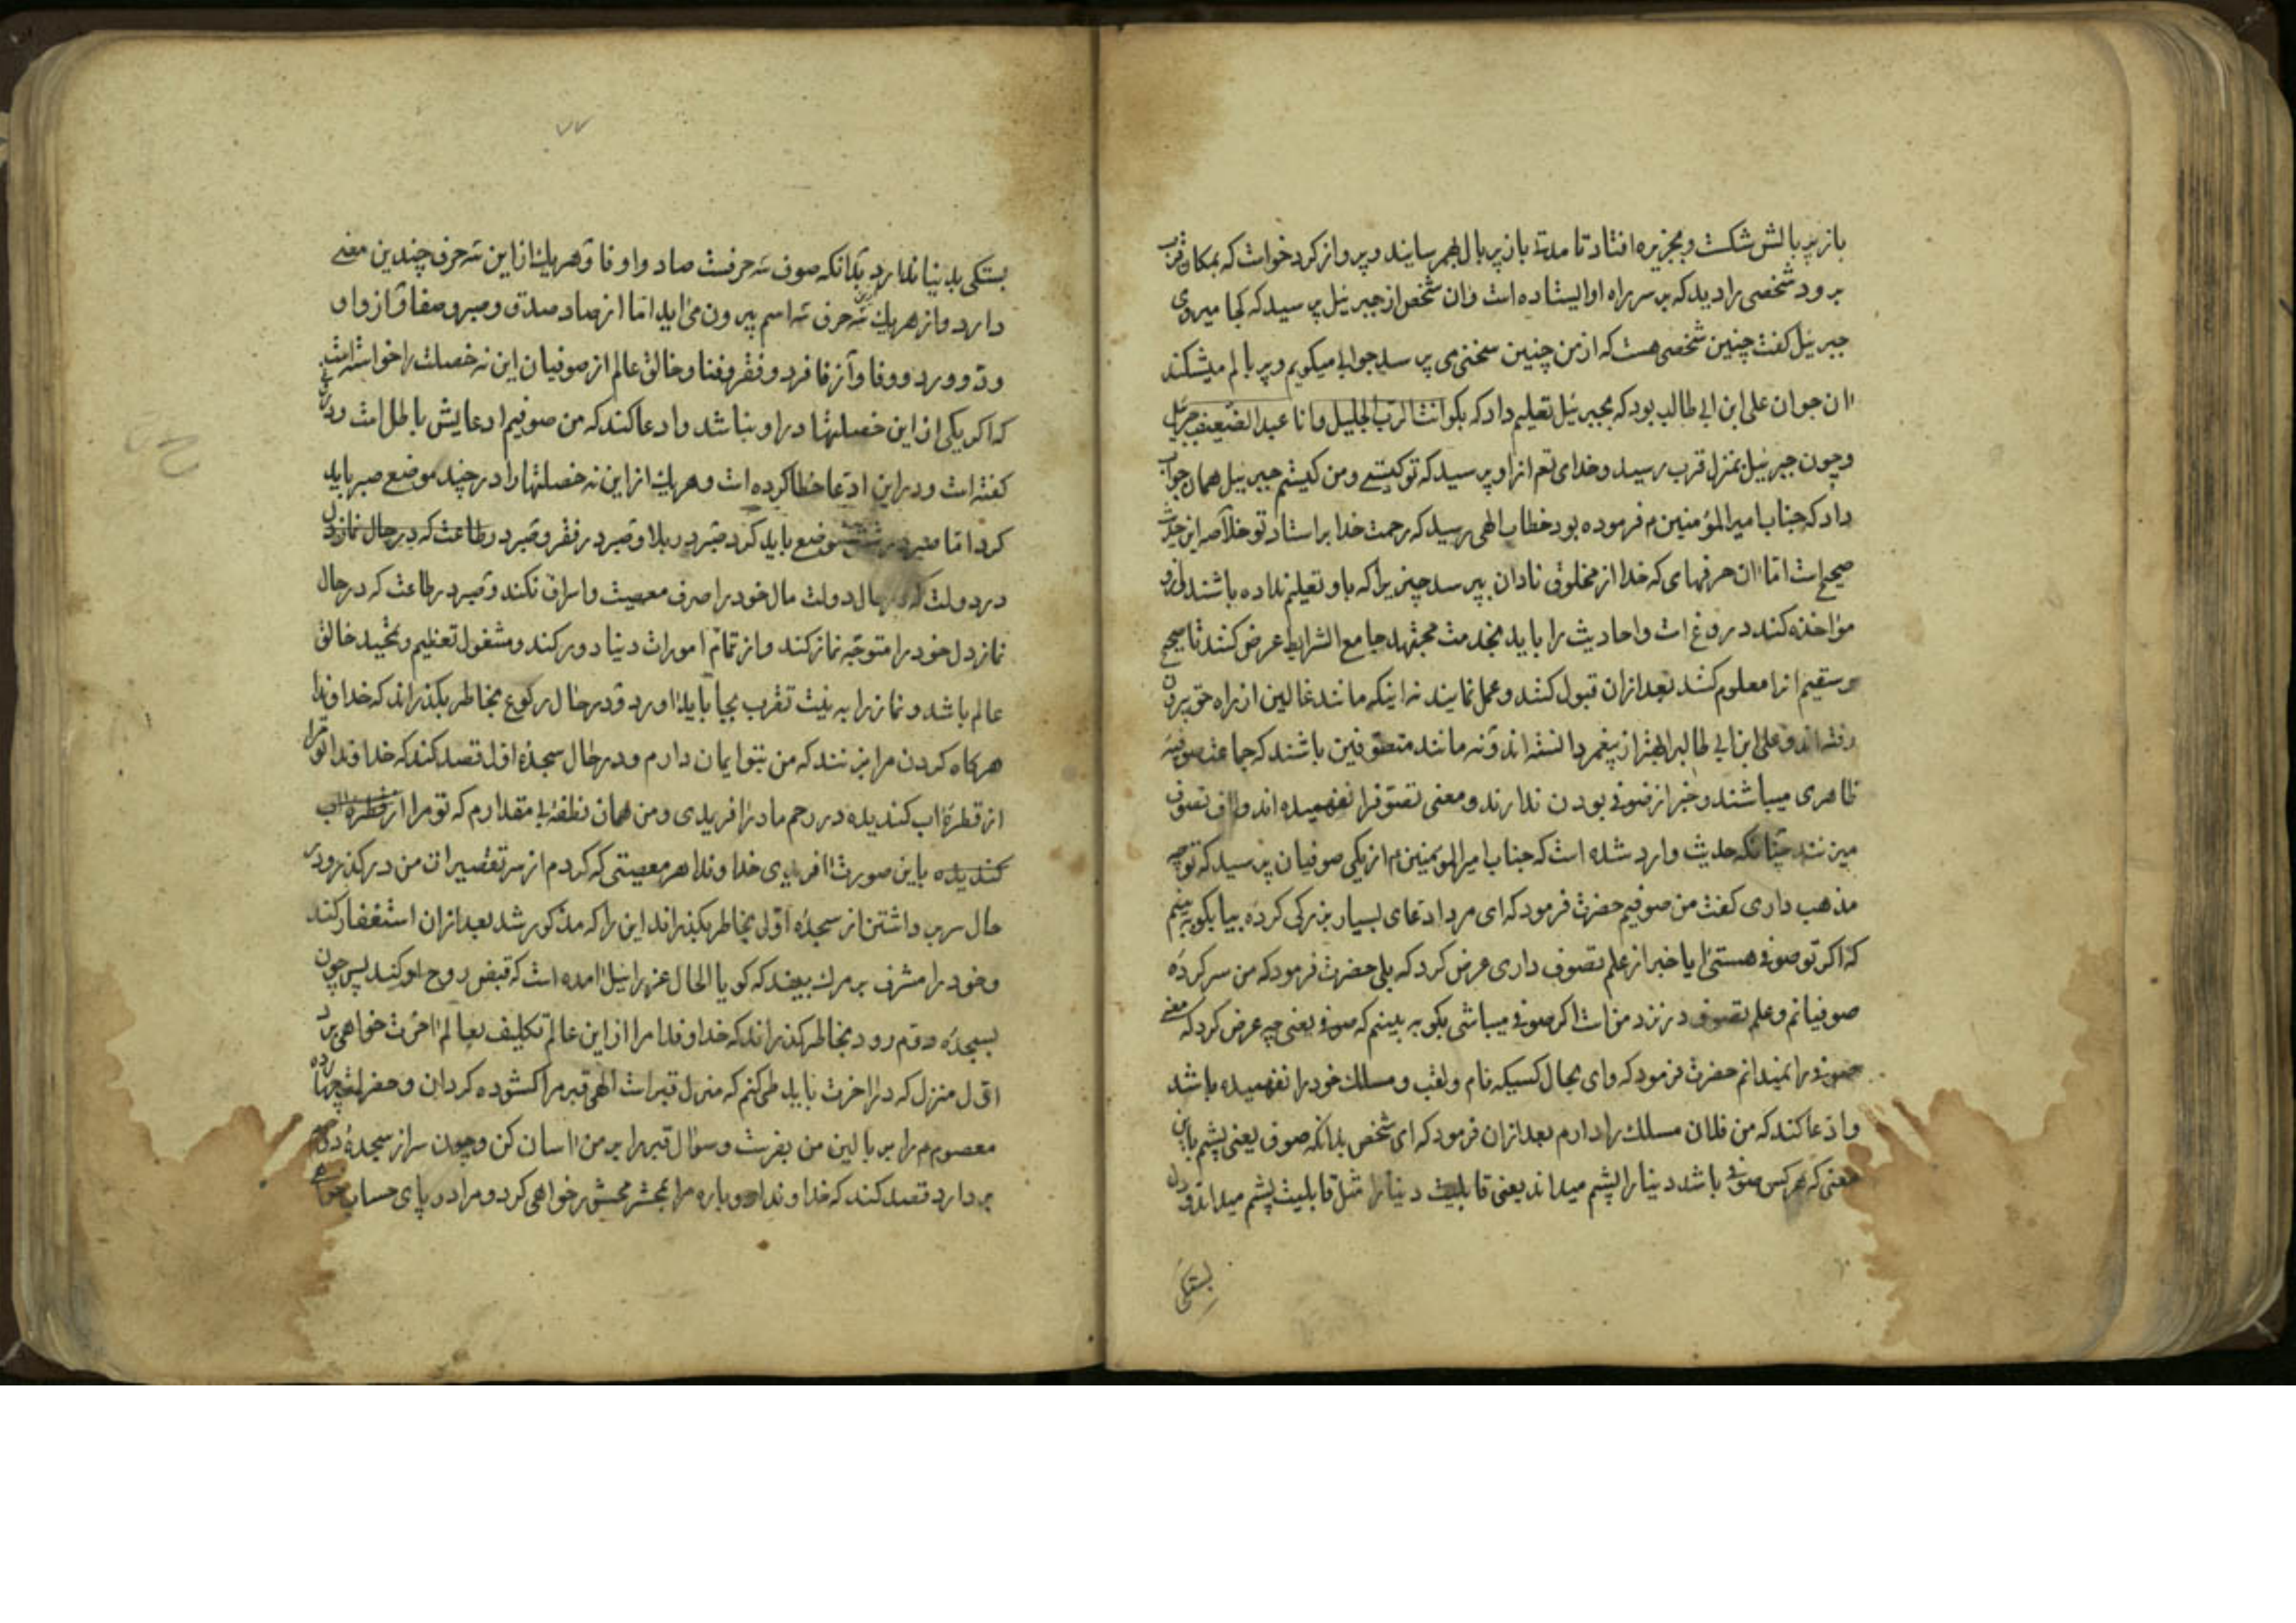 باز پر بالش شکست و بجزیره افتاد تا مدت بان پر بال بهمرسانید و پرواز کرد خواست که بمکان قرب
برود شخصی را دید که بر سر راه او ایستاده است و ان شخص از جبرئیل پرسید که کجا میروی
جبرئیل کفت چنین شخصی هست که از من چنین سخنی می پرسد جوابی میکویم و پر بالم میشکند
ان جوان علی ابن ابی طالب بود که بجبرئیل تعلیم داد که بکو انت الرب الجلیل و انا عبد الضعیف جبرئیل
و چون جبرئیل بمنزل قرب رسید و خدای تعم از او پرسید که تو کیستی و من کیستم جبرئیل همان جواب
داد که جناب امیرالمؤمنین م فرموده بود خطاب الهی رسید که رحمت خدا بر استاد تو خلاصه این حدیث
صحیح است اما ان حرفهای که خدا از مخلوق نادان بپرسد چیزیرا که باو تعلیم نداده باشند
مواخذه کند دروغ است و احادیث را باید بخدمت مجتهد جامع الشرایط عرض کنند تا صحیح
و سقیم انرا معلوم کنند بعد از ان قبول کنند و عمل نمایند نه اینکه مانند غالین از راه حق بیرون
رفته اند و علی ابن ابی طالبرا بهتر از پیغمبر دانسته اند و نه مانند متصوفین باشند که جماعت صوفیه
ظاهری میباشند و خبر از صوفی بودن ندارند و معنی تصوفرا نفهمیده اند و لاف تصوف
میزنند چنانکه حدیث وارد شده است که جناب امیرالمومنین م از یکی صوفیان پرسید که تو چه
مذهب داری کفت من صوفیم حضرت فرمود که ای مرد ادعای بسیار بزرکی کرده بیا بکو به بینم
که اکر تو صوفی هستی ایا خبر از علم تصوف داری عرض کرد که بلی حضرت فرمود که من سر کرده
صوفیانم و علم تصوف در نزد من است اکر صوفی میباشی بکو به بینم که صوفی یعنی چه عرض کرد که معنی
صوفی را نمیدانم حضرت فرمود که وای بحال کسیکه نام و لقب و مسلک خود را نفهمیده باشد
و ادعا کند که من فلان مسلک را دارم بعد از ان فرمود که ای شخص بدانکه صوف یعنی پشم باین
معنی که هر کس صوفی باشد دنیا را پشم میداند یعنی قابلیت دنیا را مثل قابلیت پشم میداند و دل
بستکی
بستکی بدنیا ندارد بدانکه صوف سه حرفست صاد و او فا و هر یک از این سه حرف چندین معنی
دارد و از هر یک سه حرف سه اسم بیرون می اید اما از صاد صدق و صبر و صفا و از واو
ود و ورد و وفا و از فا فرد و فقر و فنا و خالق عالم از صوفیان این نه خصلت را خواسته است
که اکر یکی از این خصلتها در او نباشد و ادعا کند که من صوفیم ادعایش باطل است و دروغ
کفته است و در این ادعا خطا کرده است و هر یک از این نه خصلتها را در چند موضع صبر باید
کرد اما صبر در موضع باید کرد صبر در بلا و صبر در فقر و صبر در طاعت که در حال نماز دل
در دولت که در حال دولت مال خود را صرف معصیت و اسراف نکند و صبر در طاعت که در حال
نماز دل خود را متوجه نماز کند و از تمام امورات دنیا دور کند و مشغول تعظیم و تمجید خالق
عالم باشد و نماز را به نیت تقرب بجا باید اورد و در حال رکوع بخاطر بکذراند که خداوندا
هر کاه کردن مرا بزنند که من بتو ایمان دارم و در حال سجده اول قصد کند که خداوندا تو مرا
از قطره اب کندیده در رحم مادر افریدی و من همان نطفه بی مقدارم که تو مرا از قطره اب
کندیده باین صورت افریدی خداوندا هر معصیتی که کردم از سر تقصیرات من در کذر و در
حال سر بر داشتن از سجده اولی بخاطر بکذراند این را که مذکور شد بعد از ان استغفار کند
و خود را مشرف بر مرک بیند که کویا الحال عزرائیل امده است که قبض روح او کند پس چون
بسجده دوم رود بخاطر بکذراند که خداوندا مرا از این عالم تکلیف بعالم اخرت خواهی برد
اول منزل که در اخرت باید طی کنم که منزل قبر است الهی قبر مرا کشوده کردان و حضرات چهارده
معصوم م را بر بالین من بفرست و سؤال قبر را بر من اسان کن و چون سر از سجده دوم
بر دارد قصد کند که خداوندا دوباره مرا بمحشر محشور خواهی کرد و مرا در پای حساب خواهی